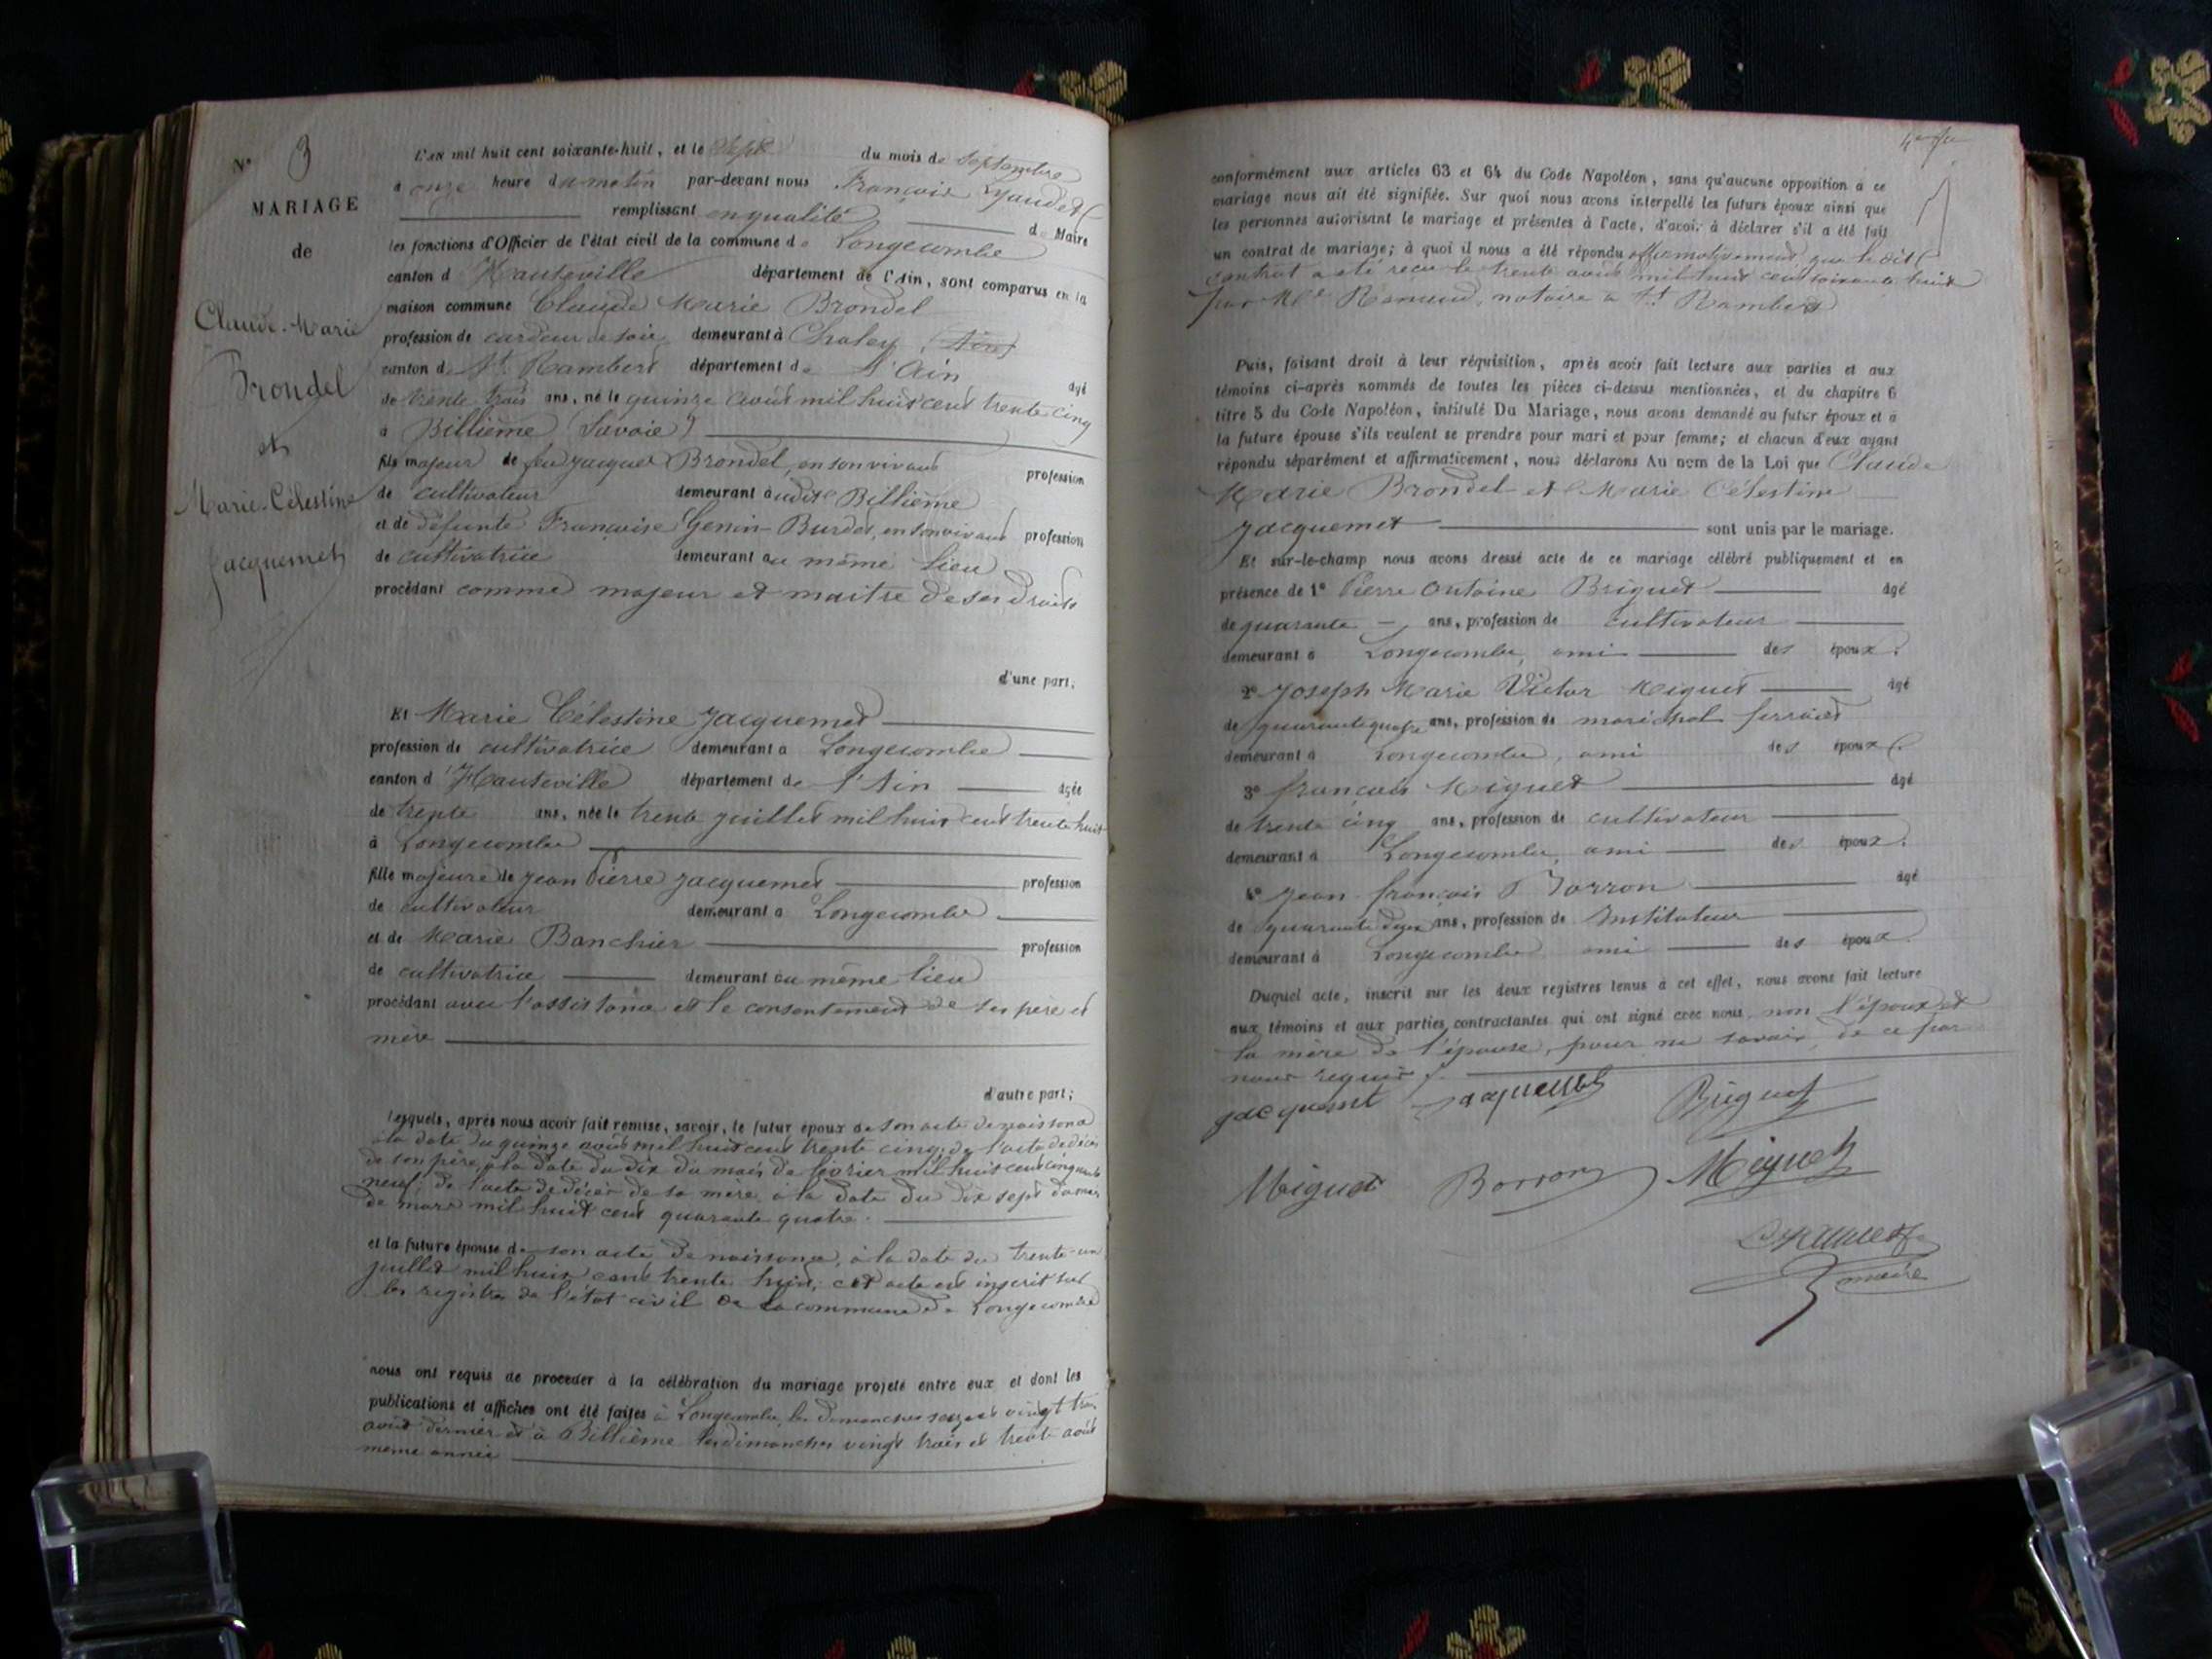 N° 3
MARIAGE
de
Claude-Marie
Brondel
et
Marie-Célestine
Jacquemet
L'AN mil huit cent soixante-huit, et le Sept du mois de Septembre
à onze heure du matin par-devant nous François
remplissant en qualité de Maire
les fonctions d'Officier de l'état civil de la commune de Longecombe
canton d'Hauteville département de l'Ain, sont comparus en la
maison commune Claude Marie Brondel
profession de cardeur de soie demeurant à Chaley
canton de St Rambert département de l'Ain âgé
de trente trois ans, né le quinze août mil huit cent trente cinq
à Billième (Savoie)
fils majeur de feu Jacques Brondel, en son vivant profession
de cultivateur demeurant audit Billième
et de défunte Françoise Genin-Burdet, en son vivant profession
de cultivatrice demeurant au même lieu
procédant comme majeur et maitre de ses droits
d'une part,
Et Marie Célestine Jacquemet
profession de cultivatrice demeurant à Longecombe
canton d'Hauteville département de l'Ain âgée
de trente ans, née le trente juillet mil huit cent trente huit
à Longecombe
fille majeure de Jean Pierre Jacquemet profession
de cultivateur demeurant à Longecombe
et de Marie Banchier profession
de cultivatrice demeurant au même lieu
procédant avec l'assistance et le consentement de ses père et
mère
d'autre part;
Lesquels, après nous avoir fait remise, savoir, le futur époux de son acte de naissance
à la date du quinze août mil huit cent trente cinq; de l'acte de décès
de son père, à la date du dix du mois de février mil huit cent cinquante
neuf, de l'acte de décès de sa mère, à la date du dix sept du mois
de mars mil huit cent quarante quatre.
et la future épouse de son acte de naissance, à la date du trente-un
juillet mil huit cent trente huit, cet acte est inscrit sur
les registres de l'état civil de la commune de Longecombe
nous ont requis de procéder à la célébration du mariage projeté entre eux et dont les
publications et affiches ont été faites à Longecombe, les dimanches seize et vingt trois
août dernier et à Billième les dimanches vingt trois et trente août
même année
conformément aux articles 63 et 64 du Code Napoléon, sans qu'aucune opposition à ce
mariage nous ait été signifiée. Sur quoi nous avons interpellé les futurs époux ainsi que
les personnes autorisant le mariage et présentes à l'acte, d'avoir à déclarer s'il a été fait
un contrat de mariage; à quoi il nous a été répondu affirmativement que le dit
contrat a été reçu le trente août mil huit cent soixante huit
par Me notaire à St Rambert
Puis, faisant droit à leur réquisition, après avoir fait lecture aux parties et aux
témoins ci-après nommés de toutes les pièces ci-dessus mentionnées, et du chapitre 6
titre 5 du Code Napoléon, intitulé Du Mariage, nous avons demandé au futur époux et à
la future épouse s'ils veulent se prendre pour mari et pour femme; et chacun d'eux ayant
répondu séparément et affirmativement, nous déclarons Au nom de la Loi que Claude
Marie Brondel et Marie Célestine
Jacquemet sont unis par le mariage.
Et sur-le-champ nous avons dressé acte de ce mariage célébré publiquement et en
présence de 1° Pierre Antoine Briguet âgé
de quarante ans, profession de cultivateur
demeurant à Longecombe, ami des époux.
2° Joseph Marie Victor Miguet âgé
de quarante quatre ans, profession de maréchal ferrant
demeurant à Longecombe, ami des époux.
3° françois Miguet âgé
de trente cinq ans, profession de cultivateur
demeurant à Longecombe, ami des époux.
4° Jean françois Borron âgé
de quarante deux ans, profession de Instituteur
demeurant à Longecombe ami des époux.
Duquel acte, inscrit sur les deux registres tenus à cet effet, nous avons fait lecture
aux témoins et aux parties contractantes qui ont signé avec nous, non l'époux et
la mère de l'épouse, pour ne savoir, de ce par
nous requis.
Jacquemet Jacquemet Briguet
Miguet Borron Miguet
maire